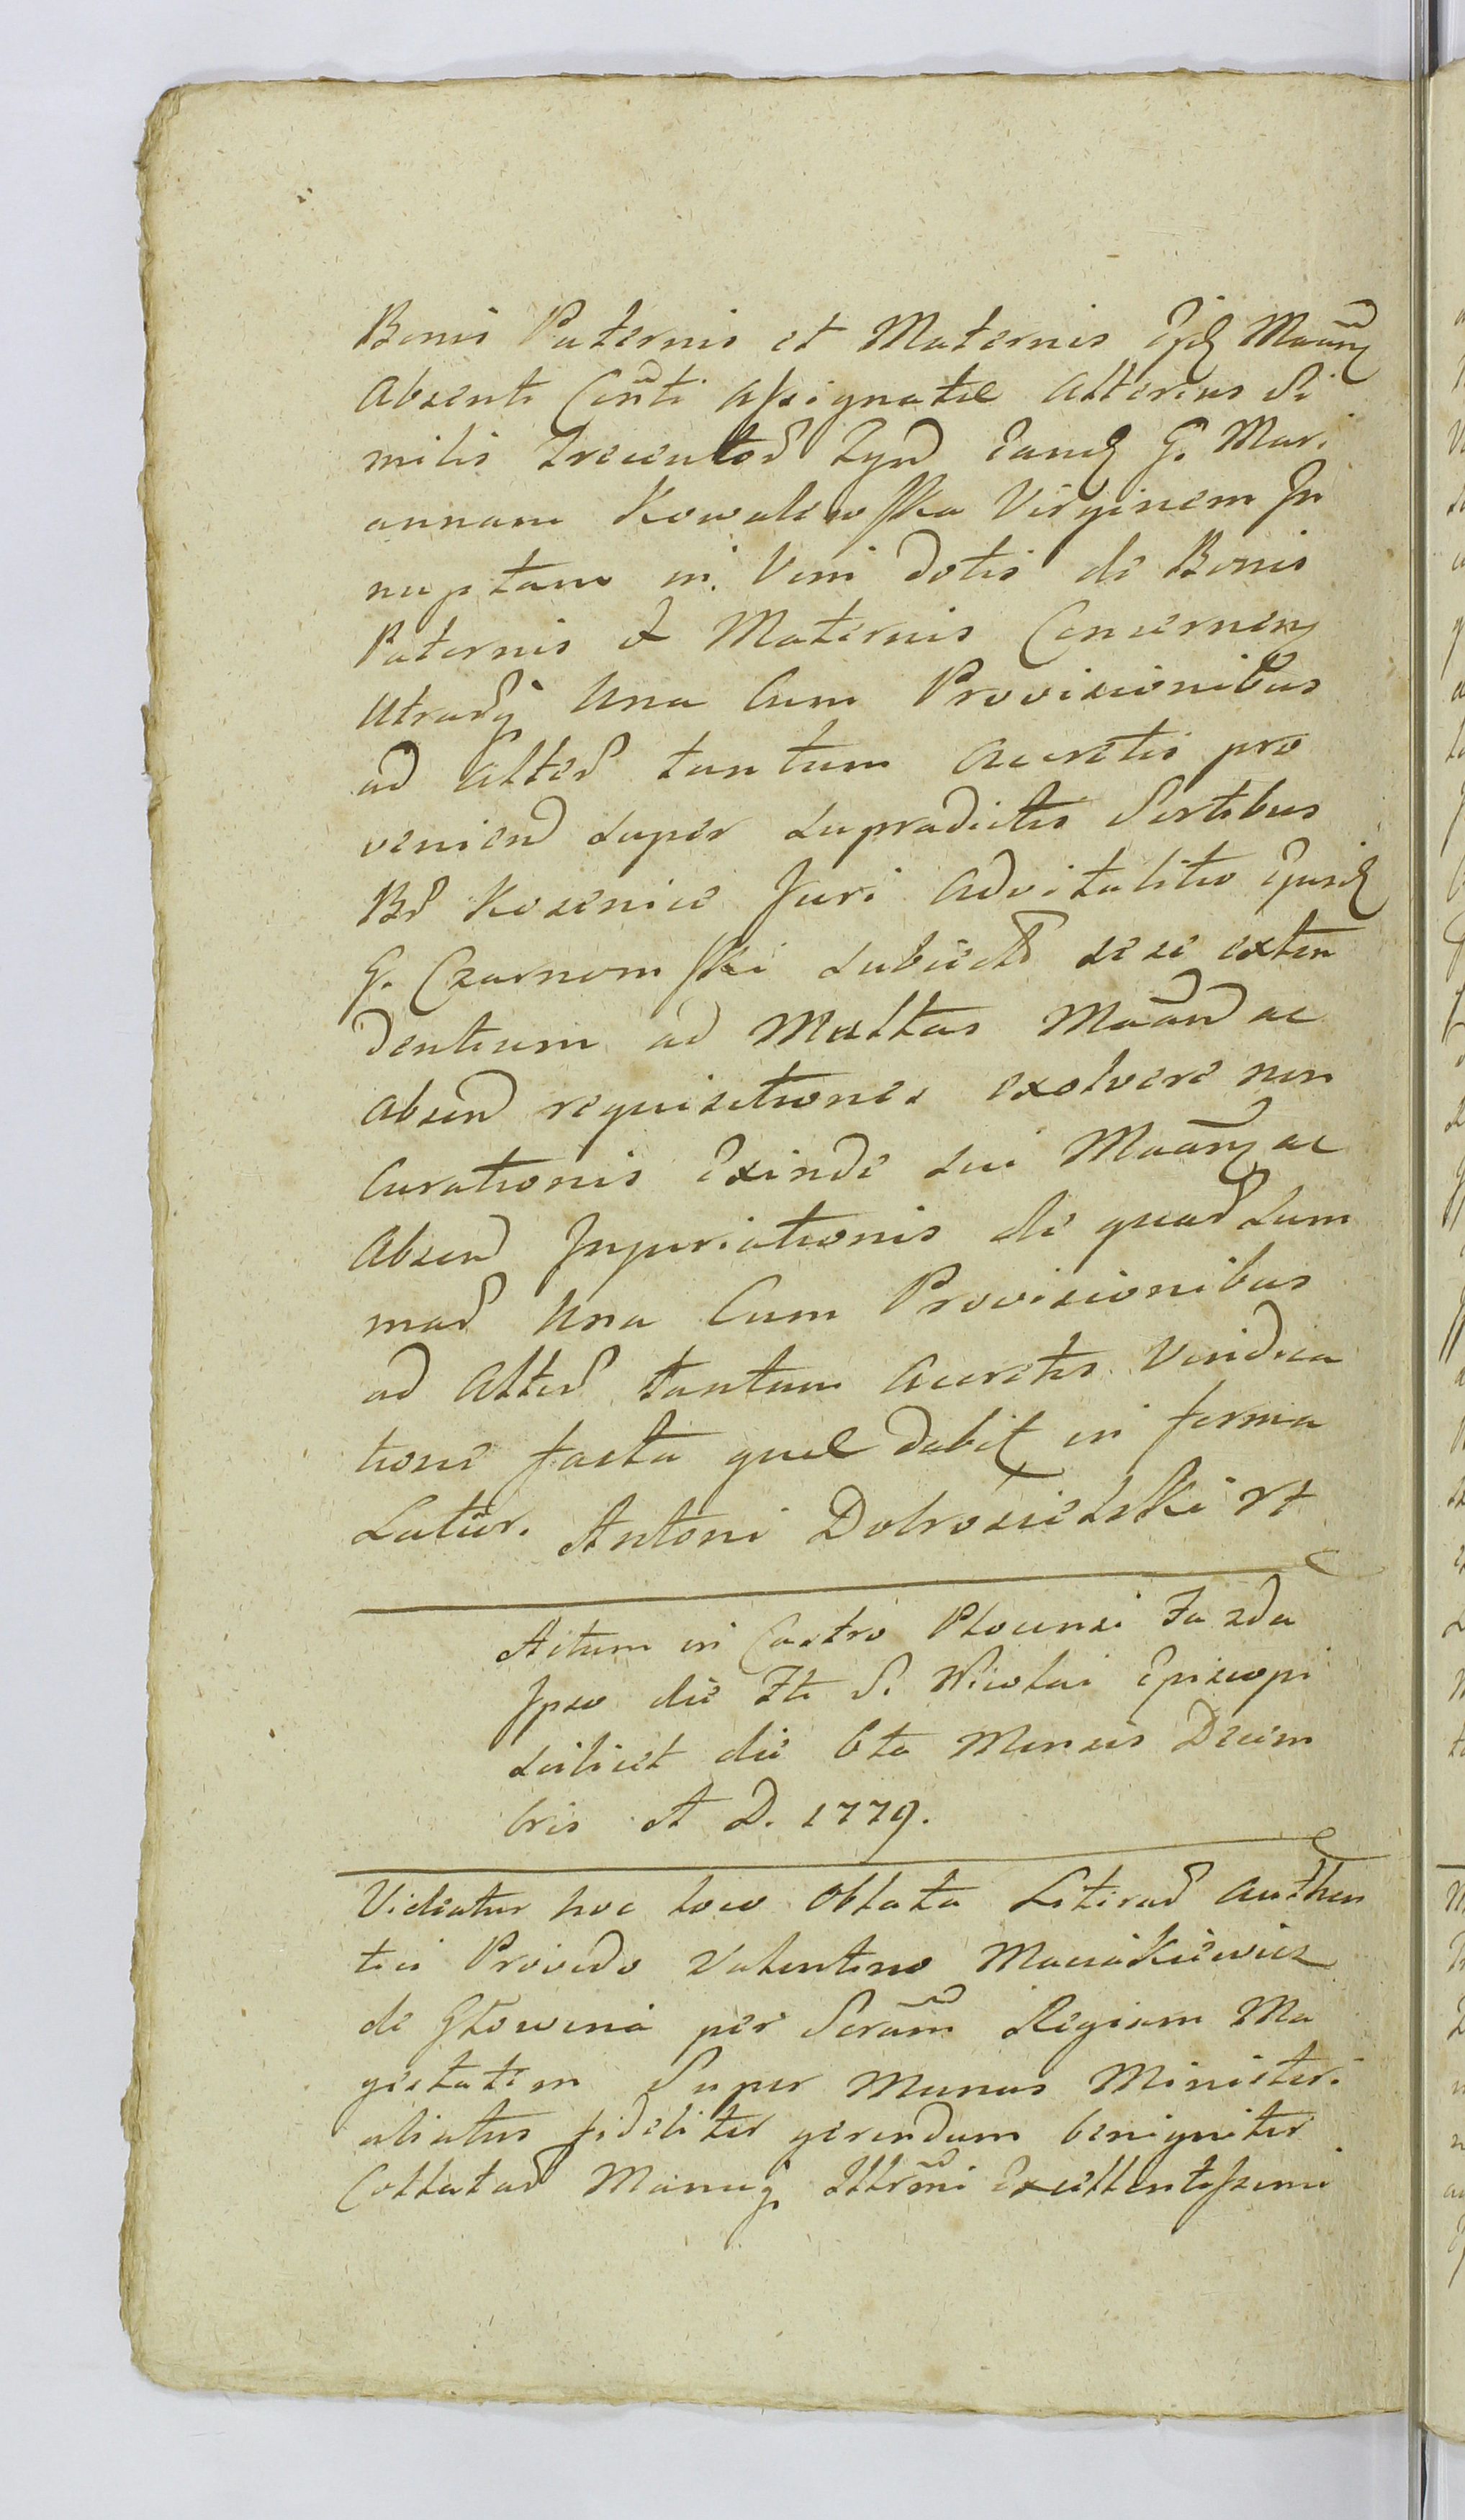 Bonis Paternis et Maternis Ejd Maãn
Absenti Cõnti assignatæ alterius Si
milis Trecentor Tynf eand G. Mari
annam Kowalewska Virginem In
nuptam in Vim dotis de Bonis
Paternis & Maternis Concernen
Utrarq Una Cum Provisionibus
ad alter tantum accretis pro
venien super supradictis Sortibus
Br Kosenice Juri Advitalitio Ejusd
G. Czarnomski subiect sese exten
dentium ad Multas Maan ac
absen requisitiones exolvere non
Curationis Exinde sui Maan ac
Absen Injuriationis de quar Sum
mar Una Cum Provisionibus
ad Alter tantum accretis Vindica
tione facta quæ dabit in forma
Latior. Antoni Dobrosielski rt
Actum in Castro Plocensi Fa 2da
Ipso die Fti S. Nicolai Episcopi
scilicet die 6ta Mensis Decem
bris A D. 1779.
Videatur hoc loco Oblata Literar authen
tici Provido Valentino Maciakiewicz
de Głowina per Serãm Regiam Ma
gestatem Super Munus Ministeri
aliatus fideliter gerendum benigniter
Collatar Manuq Illrmi Excellentissimi